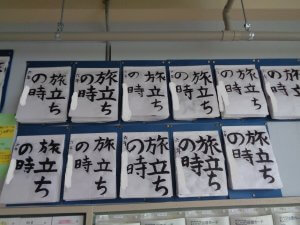 旅立ち
の時
旅立ち
の時
旅立ち
の時
旅立ち
の時
旅立ち
の時
旅立ち
の時
旅立ち
の時
旅立ち
の時
旅立ち
の時
旅立ち
の時
旅立ち
の時